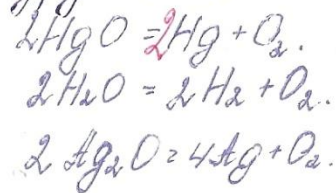 2HgO = 2Hg + O₂.
2H₂O = 2H₂ + O₂..
2Ag₂O = 4Ag + O₂.